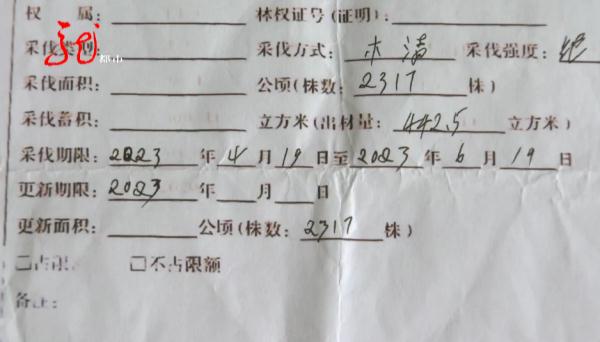 权 属：林权证号(证明)：
采伐类型：采伐方式：采伐强度：
采伐面积：公顷(株数：2317株)
采伐蓄积：立方米(出材量：442.5立方米)
采伐期限：2023年4月19日至2023年6月19日
更新期限：2023年 月 日
更新面积：公顷(株数：2317株)
□占限 □不占限额
备注：
都市